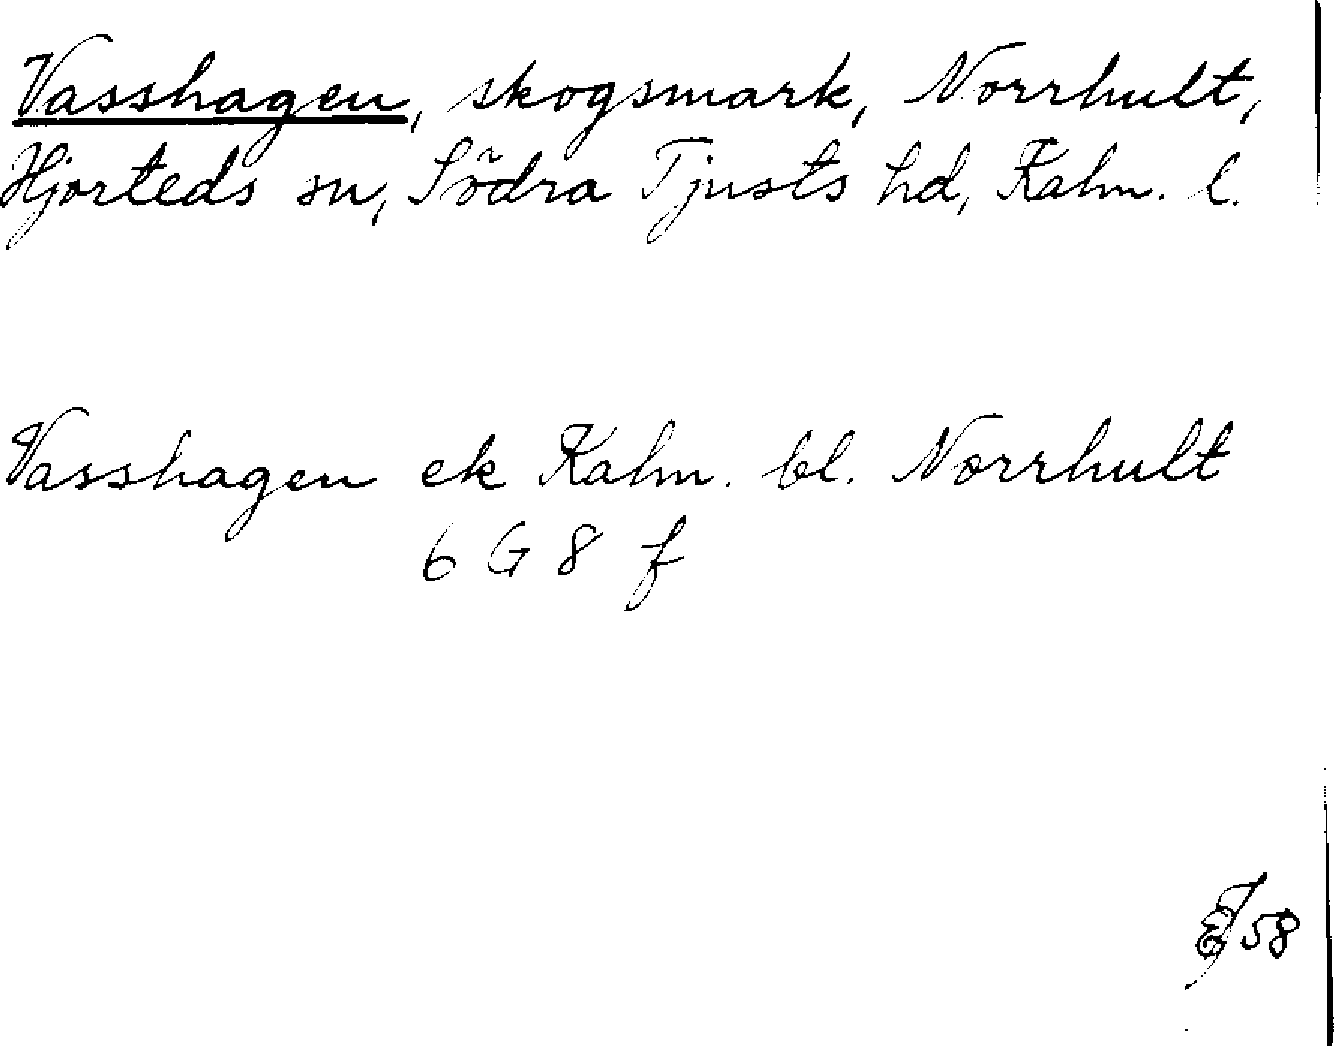 Vasshagen, skogsmark, Norrhult,
Hjorteds sn, Södra Tjusts hd, Kalm. l.
Vasshagen ek Kalm. bl. Norrhult
6 G 8 f
EJ 58